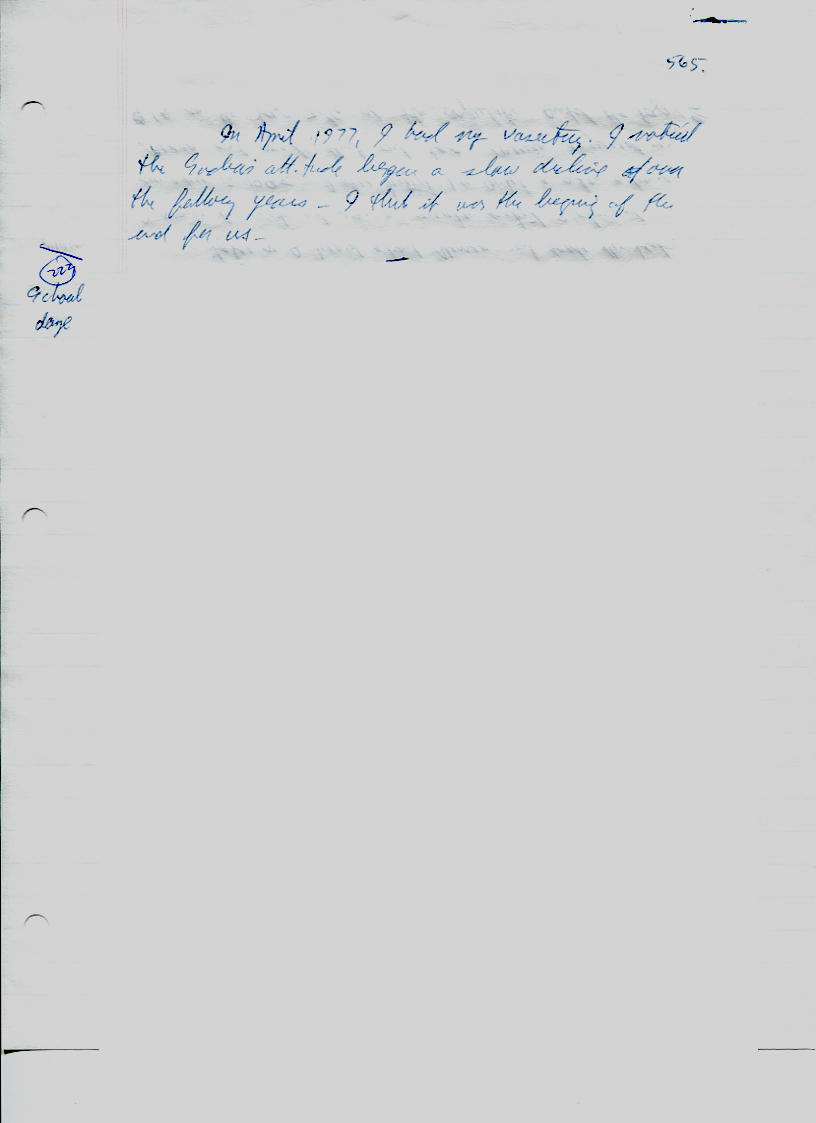 565.
In April 1977, I had my vasectmy. I noticed
the attitude began a slow decline over
the follwg years – I thk it was the begining of the
end for us –
223
School
daze